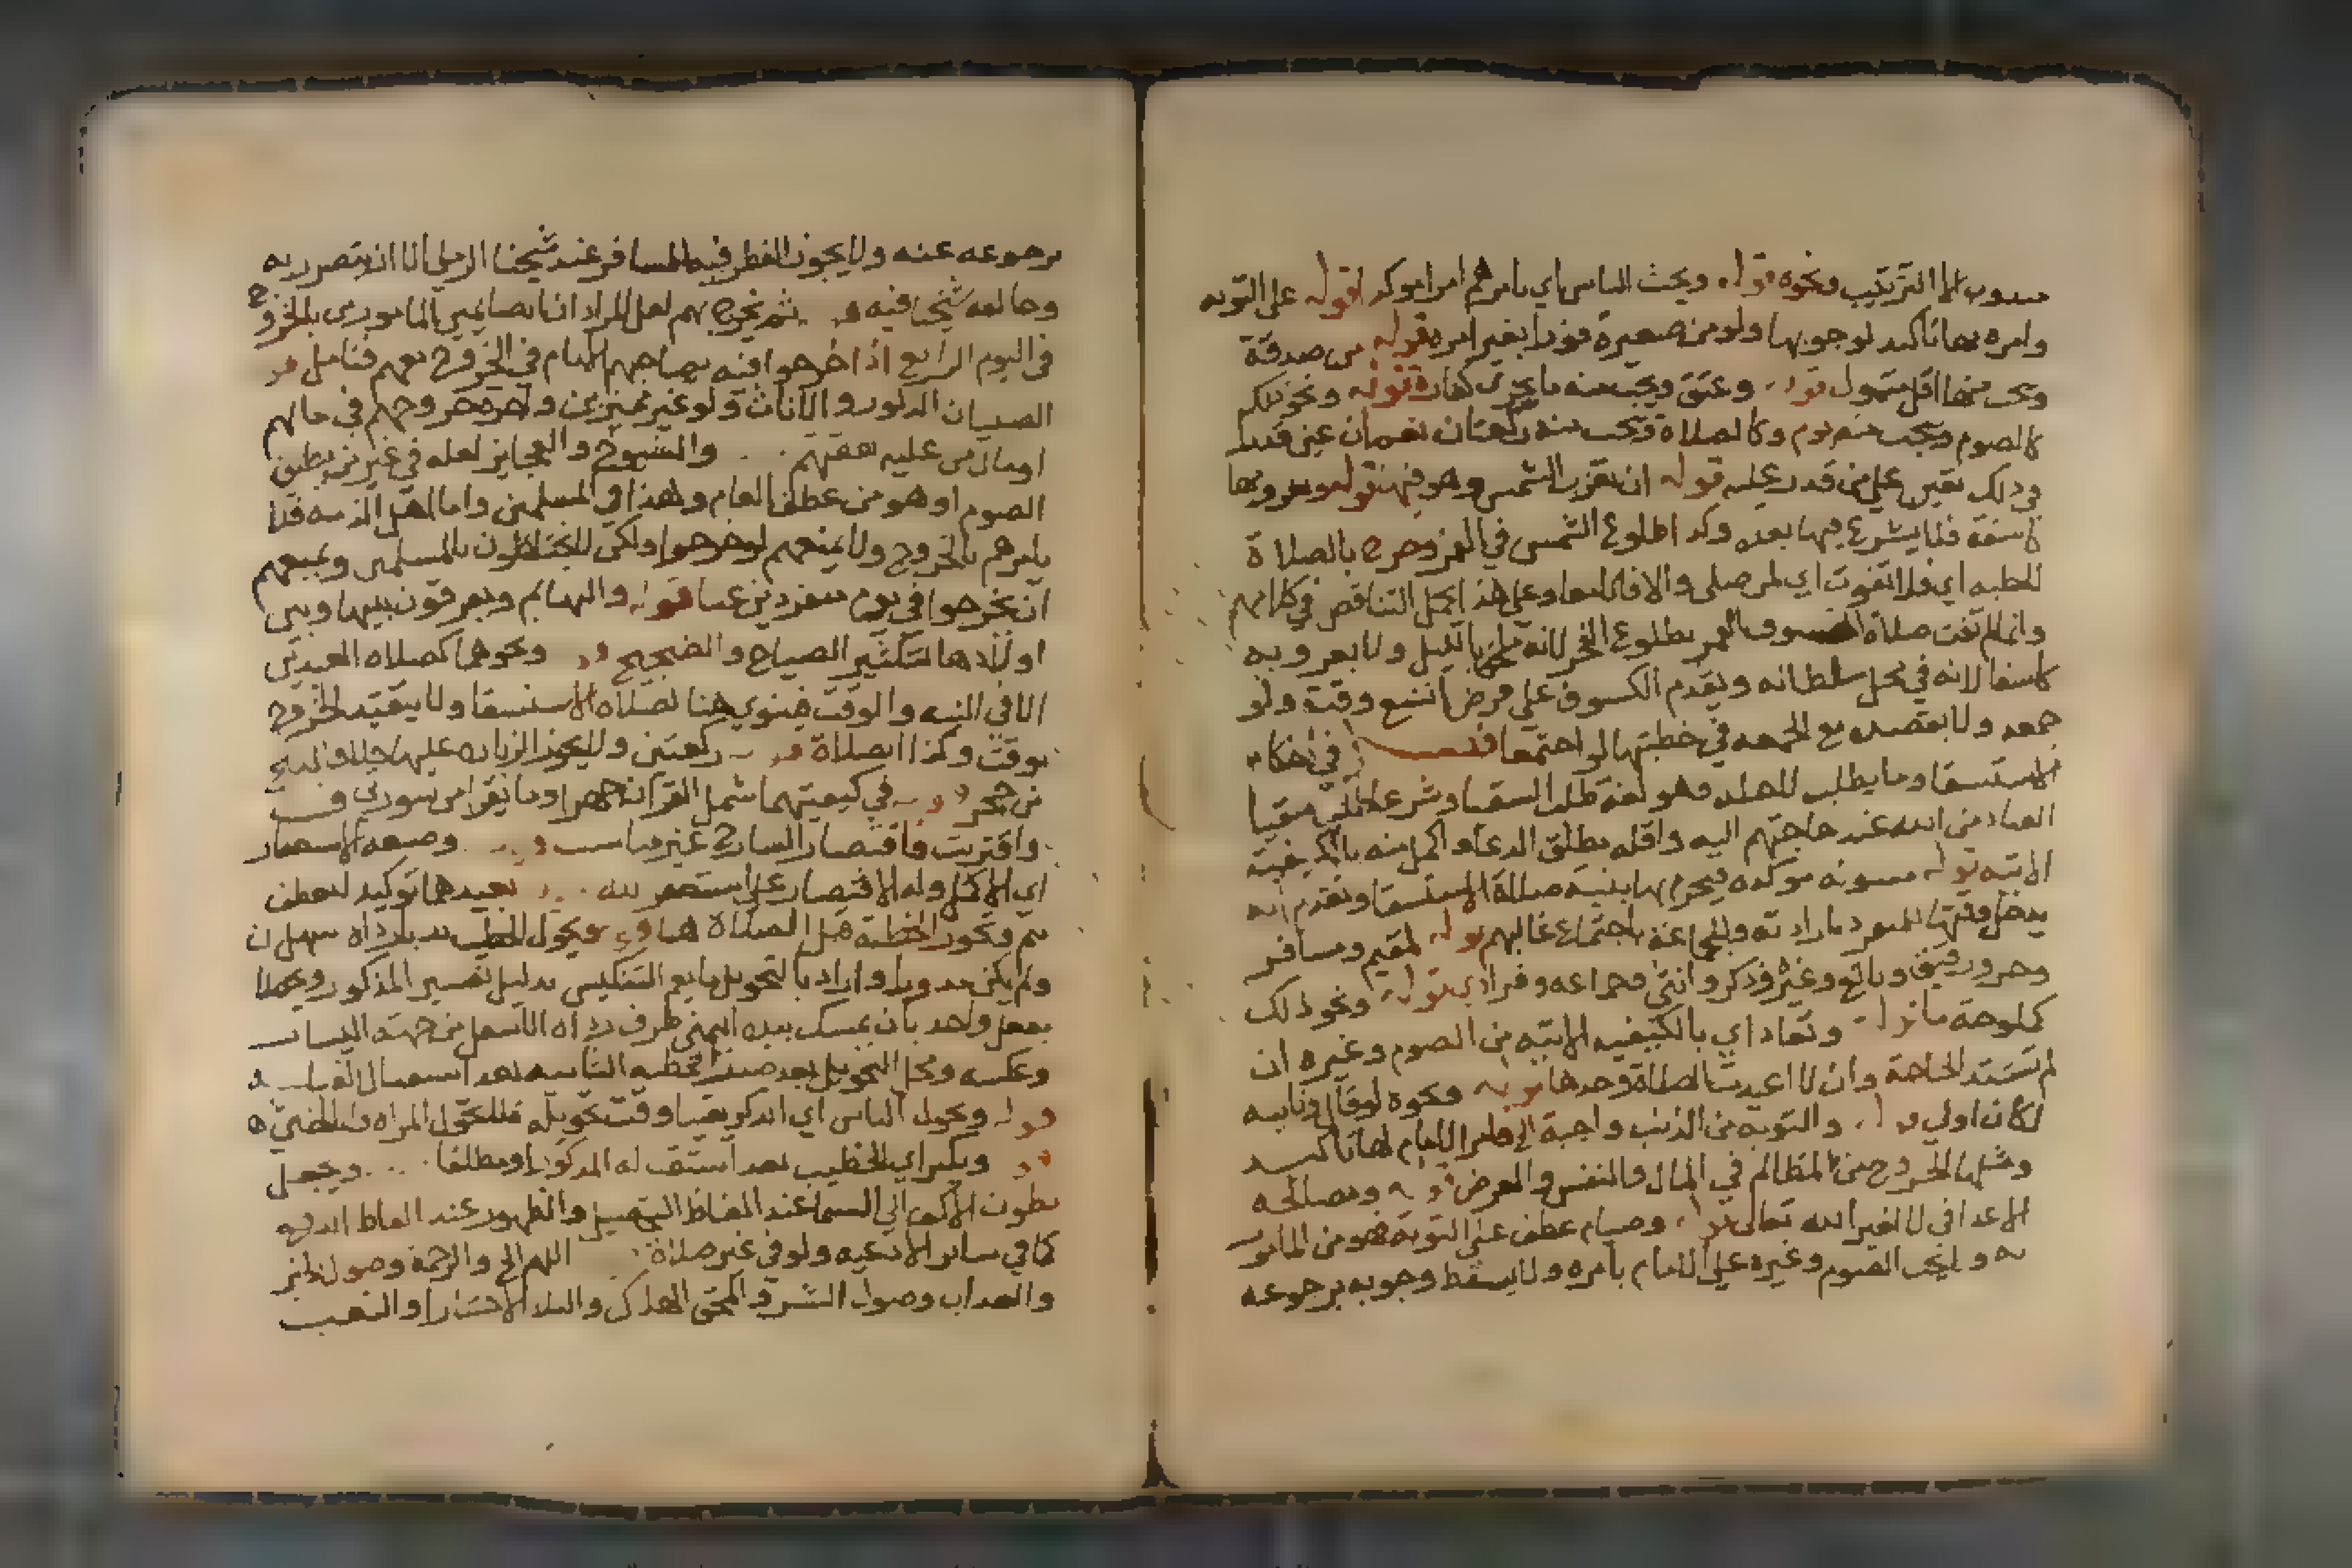 مندوب الا الترتيب ونحوه قوله ويحث الناس اي يامرهم امرا موكدا قوله على التوبه
وامره بها تاكيد لوجوبها ولو من صغيرة فورا بغير امره قوله من صدقة
ويجب منها اقل متمول قوله وعتق ويجب منه ما يجزى كفارة قوله ونحو ذلكم
كالصوم ويجب منه يوم وكالصلاة فيجب منه ركعتان نعم ان عين قدرا
في ذلك تعين على من قدر عليه قوله ان تغرب الشمس وهو فيها قوله بغروبها
كاسفة فلا يشرع فيها بعده وكذا طلوع الشمس في القمر وخرج بالصلاة
الخطبه اي فلا تفوت اي لمن صلى والا فلا وعلى هذا يحمل التناقض في كلامهم
وانما لم تفت صلاة خسوف القمر بطلوع الفجر لانه ملحق بالليل ولا بغروبه
كاسفا لانه في محل سلطانه ويقدم الكسوف على فرض اتسع وقته ولو
جمعه ولا يقصده مع الجمعه في خطبتها لو اجتمعا فصل في احكام
الاستسقا وما يطلب للعباد وهو لغة طلب السقيا وشرعا طلب سقيا
العباد من الله عند حاجتهم اليه واقله مطلق الدعا واكمل منه بالكيفية
الاتيه قوله مسنونه موكده فيحرم بها بنية صلاة الاستسقا وتقدم انه
يدخل وقتها للمنفرد بارادته وللجماعة باجتماع غالبهم قوله لمقيم ومسافر
وحر ورقيق وبالغ وغيره وذكر وانثى وجماعه وفرادى قوله ونحو ذلك
كملوحة ما قوله وتعاد اي بالكيفيه الاتيه من الصوم وغيره ان
لم تشتد الحاجة وان لا اعيدت الصلاة وحدها قوله ونحوه لو قال ونايبه
لكان اولى قوله والتوبه من الذنب واجبة فامر الامام لها تاكيد
ومثلها الخروج من المظالم في المال والنفس والعرض قوله ومصالحه
الاعدا في لا لغير الله تعالى قوله وصيام عطف على التوبة فهو من المامور
به ويجب الصوم وغيره على الامام بامره ولا يسقط وجوبه برجوعه
برجوعه عنه ولا يجوز الفطر فيه للمسافر عند شيخنا الرملي الا ان يتضرر به
وخالفه شيخنا فيه قوله ثم يخرج بهم لعل المراد انه يصاحبهم المامورين بالخروج
في اليوم الرابع اذا خرجوا فيه يصاحبهم الامام في الخروج معهم فتامل قوله
الصبيان الذكور والاناث ولو غير مميزين واجرة خروجهم في مالهم
او مال من عليه نفقتهم والشيوخ والعجايز لعله في غير من يطيق
الصوم او هو من عطف العام وهذا في المسلمين واما اهل الذمه فلا
يامرهم بالخروج ولا يمنعهم لو خرجوا ولكن لا يختلطون بالمسلمين ويمنعهم
ان يخرجوا في يوم منفردين عنا قوله والبهايم ويفرقون بينها وبين
اولادها لتكثير الصياح والضجيج قوله ونحوهما كصلاه العيدين
الا في النيه والوقت فينوي هنا لصلاة الاستسقا ولا يتقيد الخروج
بوقت وكذا الصلاة قوله ركعتين ولا يجوز الزياده عليها خلافا لشيخ
بن حجر قوله في كيفيتهما شمل القران جهرا وما يقرا من سورتي ق
واقتربت واقتصار الشارح غير مناسب قوله وصيغه الاستغفار
اي الاكمل وله الاقتصار على استغفر الله بعيدهما توكيد لعطف
ثم وتكون الخطبة قبل الصلاة هنا قوله ويحول الخطيب رداه ان سهل
ولم يكن مدورا واراد بالتحويل ما يعم التنكيس بدليل تفسير المذكور ويحصلا
بفعل واحد بان يمسك بيده اليمنى طرف رداه الاسفل من جهة اليسار
وعكسه ومحل التحويل بعد صدر الخطبه الثانيه بعد استقبال القبلة
قوله ويحول الناس اي الذكور يقينا وقت تحويله فلا تحول المراه ولا الخنثى
قوله ويكبر اي الخطيب بعد استقباله المذكور او مطلقا ويجعل
بطون الاكف الى السما عند الفاظ التحصيل والظهور عند الفاظ الدفع
كما في ساير الادعيه ولو في غير صلاة اللهم الخ والرحمة وصول الخير
والعذاب وصول الشر والمحق الهلاك والبلا الاختبار والتعب